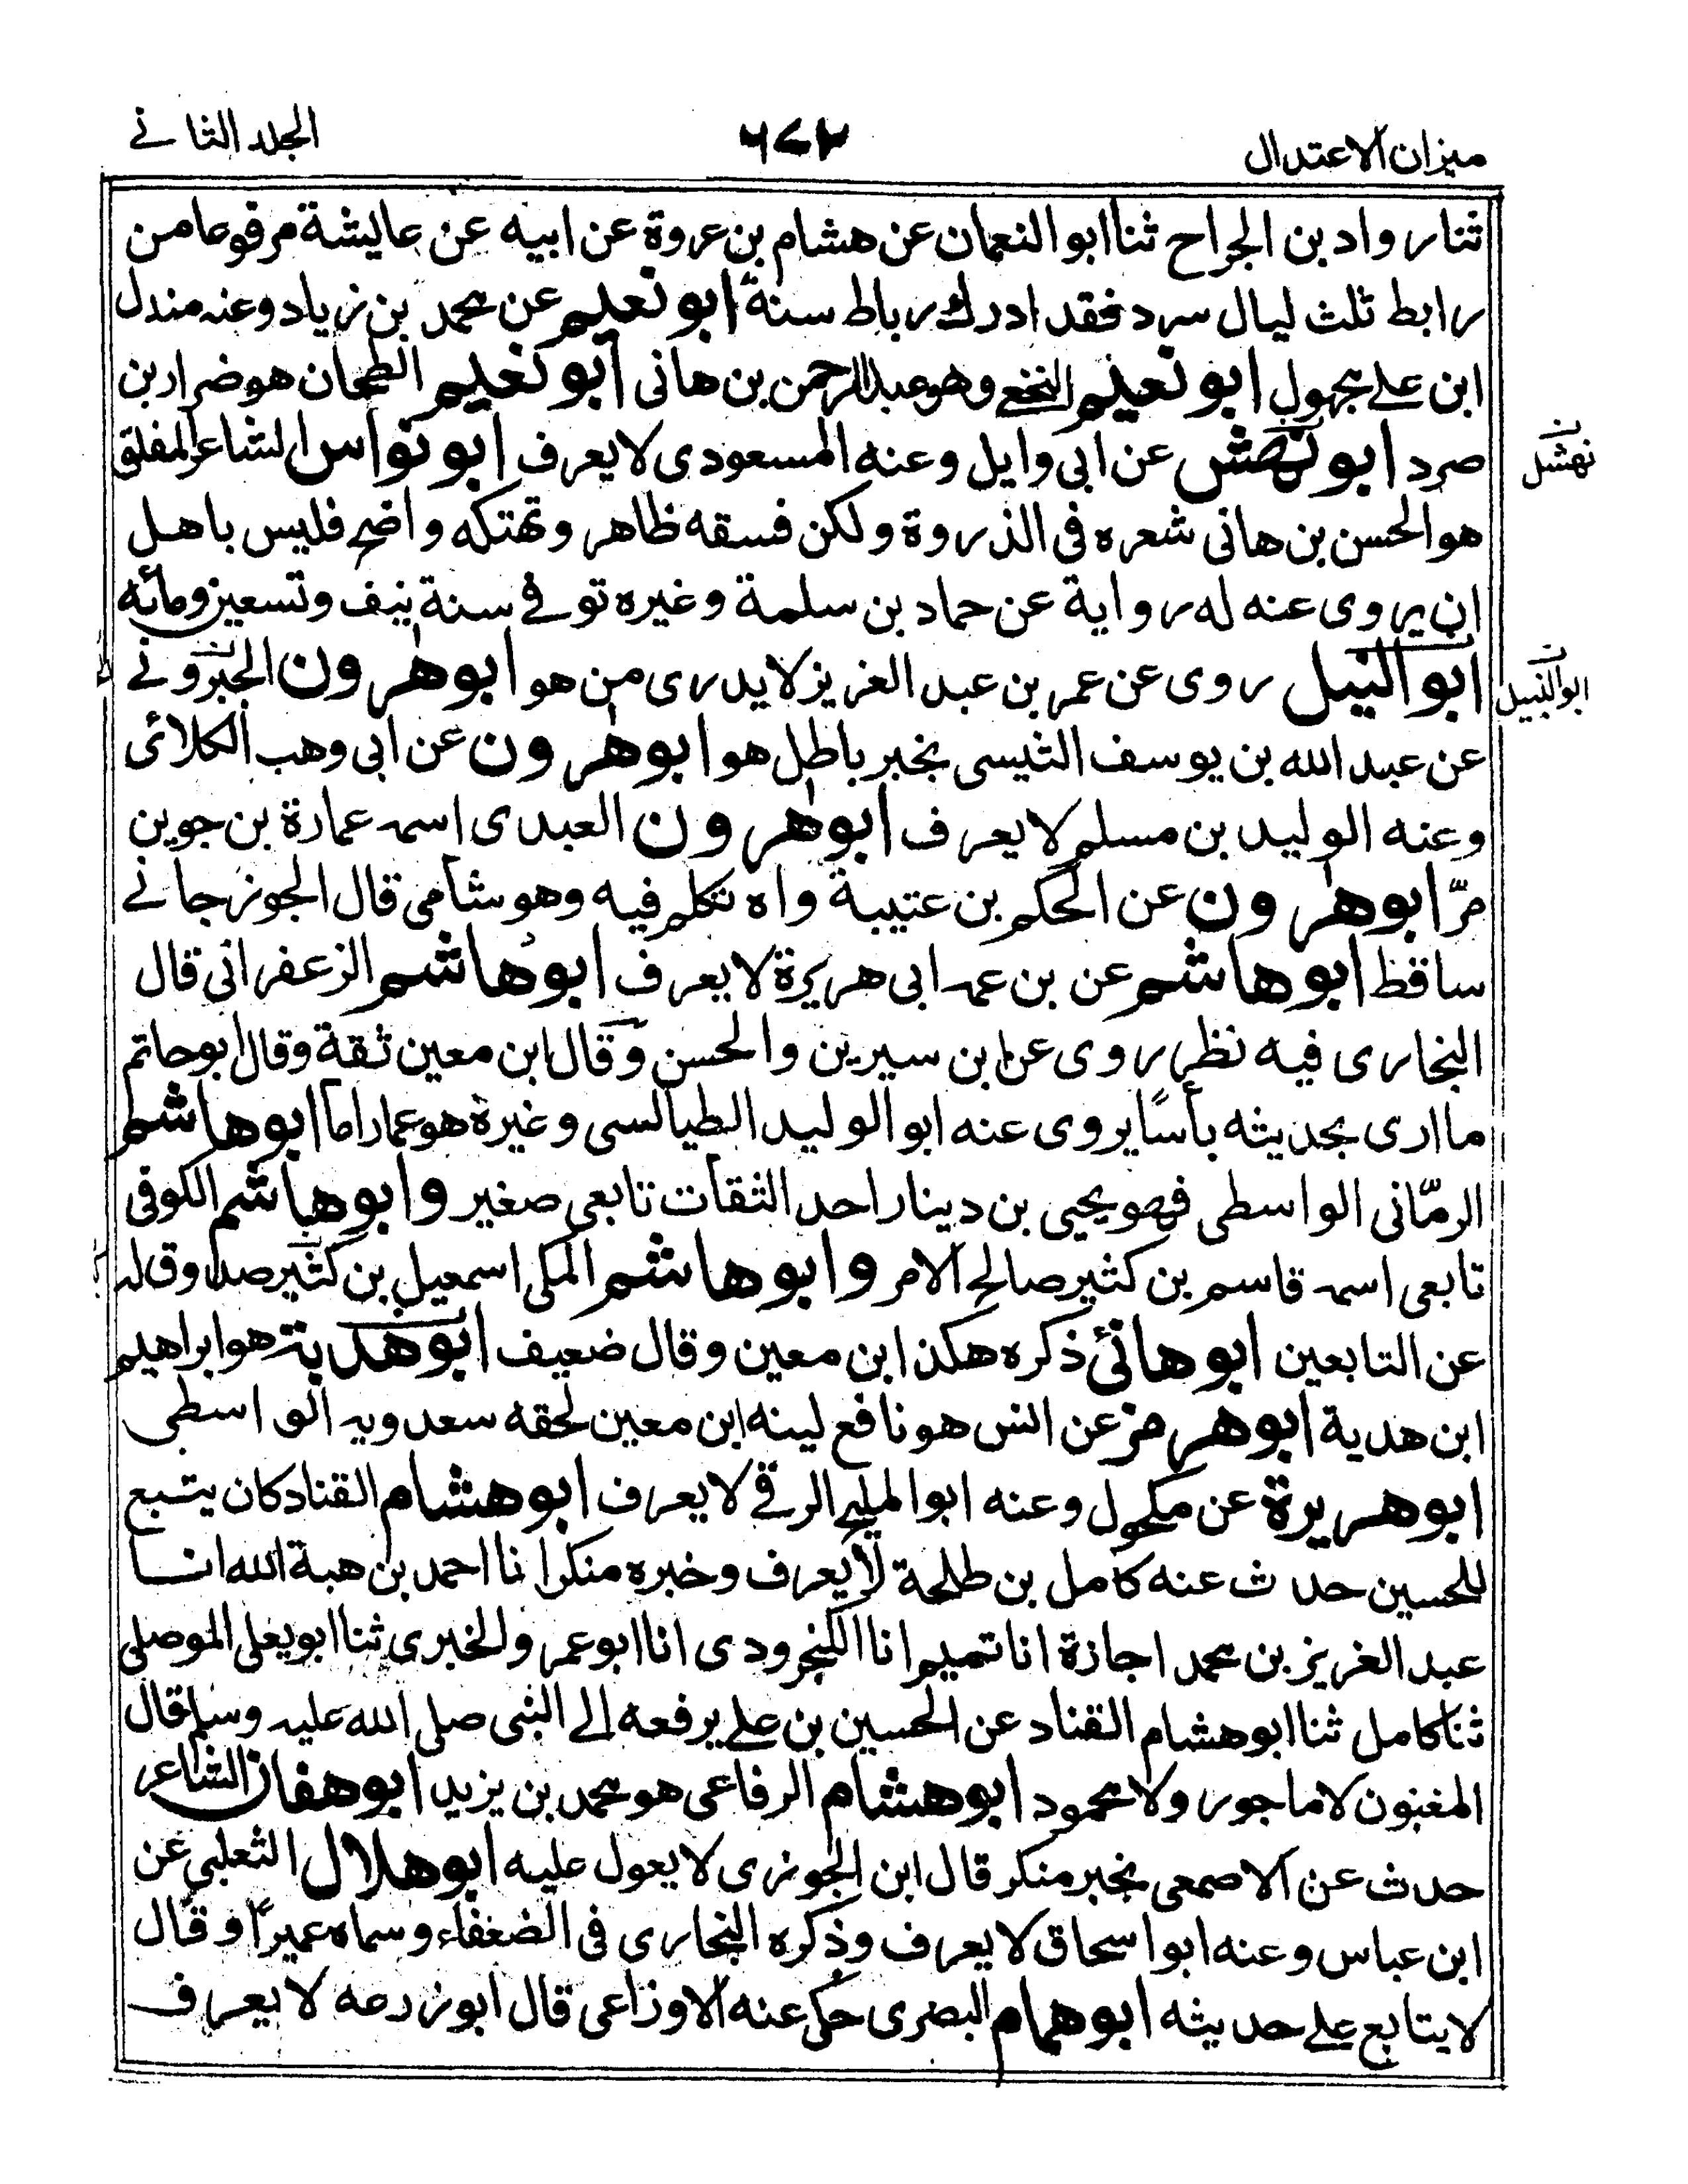 ميزان الاعتدال
٦٧٢
الجلد الثانے
ثنا رواد بن الجراح ثنا ابو النعمان عن هشام بن عروة عن ابيه عن عايشة مرفوعا من
رابط ثلث ليال سرد فقد ادرك رباط سنة ابو نعيم عن محمد بن زياد وعنه مندل
ابن علے مجهول ابو نعيم النخعے وهو عبد الرحمن بن هانى ابو نعيم الطحان هو ضرار بن
صرد ابو نهش عن ابى وايل وعنه المسعودى لا يعرف ابو نواس الشاعر المفلق
ن
نهشل
هو الحسن بن هانى شعره فى الذروة ولكن فسقه ظاهر وتهتكه واضح فليس باهل
ان يروى عنه له رواية عن حماد بن سلمة وغيره توفے سنة نيف وتسعين ومائه
ابو النيل روى عن عمر بن عبد العزيز لا يدرى من هو ابو هرون الجبرونے
ن
ابو النبيل
عن عبد الله بن يوسف التنيسى بخبر باطل هو ابو هرون عن ابى وهب الكلائى
وعنه الوليد بن مسلم لا يعرف ابو هرون العبدى اسمه عمارة بن جوين
مرّ ابو هرون عن الحكم بن عتيبة واه تكلم فيه وهو شامى قال الجوزجانے
ساقط ابو هاشم عن بن عمه ابى هريرة لا يعرف ابو هاشم الزعفرانى قال
البخارى فيه نظر روى عن ابن سيرين والحسن وقال ابن معين ثقة وقال ابو حاتم
ما ارى بحديثه بأسًا يروى عنه ابو الوليد الطيالسى وغيرة هو عمار اما ابو هاشم
الرمّانى الواسطى فهو يحيى بن دينار احد الثقات تابعى صغير وابو هاشم الكوفى
تابعى اسمه قاسم بن كثير صالح الامر وابو هاشم المكى اسمعيل بن كثير صدوق له
عن التابعين ابو هانئ ذكره هكذ ابن معين وقال ضعيف ابو هدبة هو ابراهيم
ابن هدية ابو هرمز عن انس هو نافع لينه ابن معين لحقه سعدويه الواسطى
ابو هريرة عن مكحول وعنه ابو المليح الرقے لا يعرف ابو هشام القناد كان يتبع
للحسين حدث عنه كامل بن طلحة لا يعرف وخبره منكر انا احمد بن هبة الله انا
عبد العزيز بن محمد اجازة انا تميم انا الكنجرودى انا ابو عمرو الخبرى ثنا ابو يعلى الموصلى
ثنا كامل ثنا ابو هشام القناد عن الحسين بن علے يرفعه الے النبى صلى الله عليه وسلم قال
المغبون لا ماجور ولا محمود ابو هشام الرفاعى هو محمد بن يزيد ابو هفان الشاعر
حدث عن الاصمعى بخبر منكر قال ابن الجوزى لا يعول عليه ابو هلال الثعلبى عن
ابن عباس وعنه ابو اسحاق لا يعرف وذكره البخارى فى الضعفاء وسماه عميرًا وقال
لا يتابع علے حديثه ابو همام البصرى حكى عنه الاوزاعى قال ابو زرعه لا يعرف